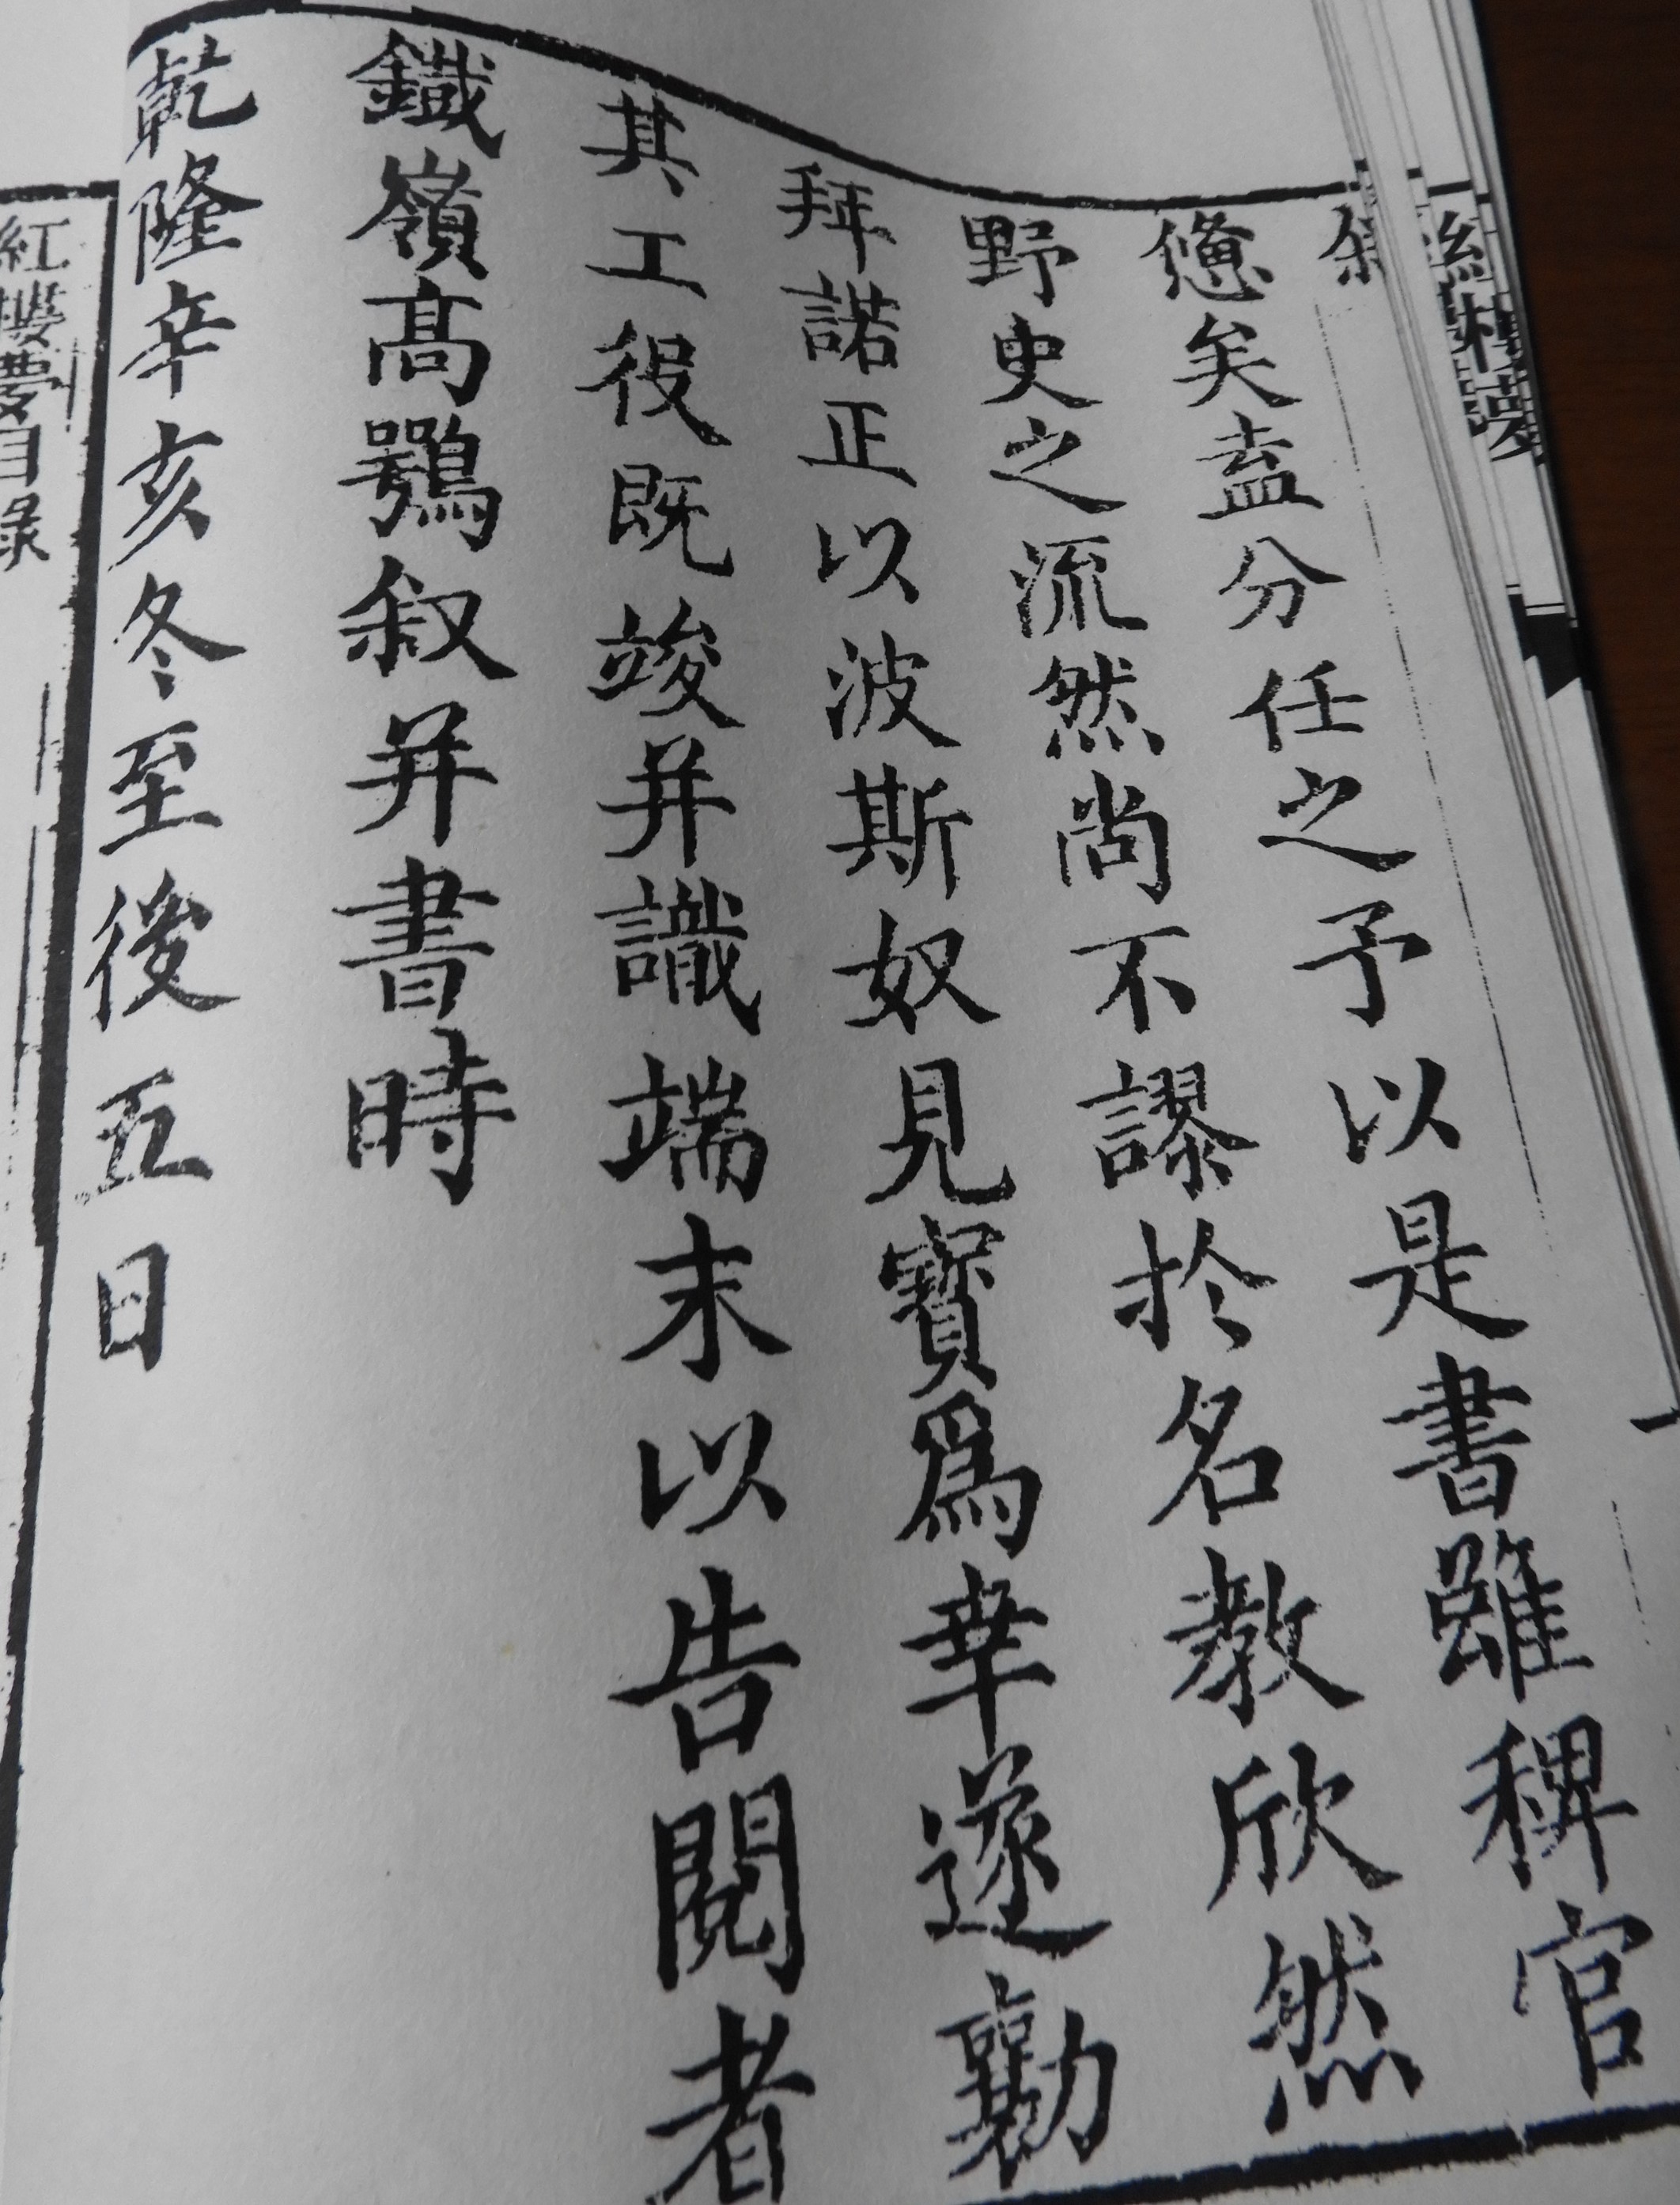 紅樓夢
憊矣盍分任之予以是書雖稗官
野史之流然尚不謬於名教欣然
拜諾正以波斯奴見寶爲幸遂襄
其工役既竣并識端末以告閱者
鐵嶺高鶚叙并書時
乾隆辛亥冬至後五日
紅樓夢目錄